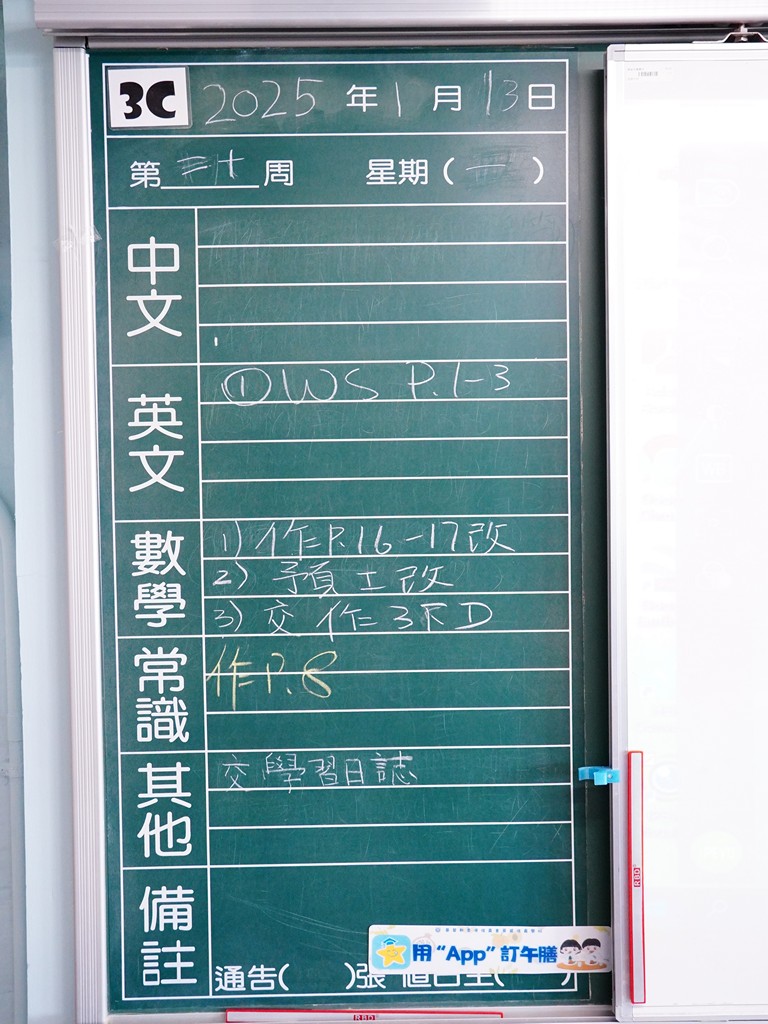 3C 2025 年 1 月 13 日
第 二十 周 星期 ( 一 )
中文
英文
① WS P.1-3
數學
1) 作 P.16-17改
2) 預 改
3) 交 作 3 D
常識
作 P.8
其他
交學習日誌
備註
用 “App” 訂午膳
通告( )張
RBD
RBD